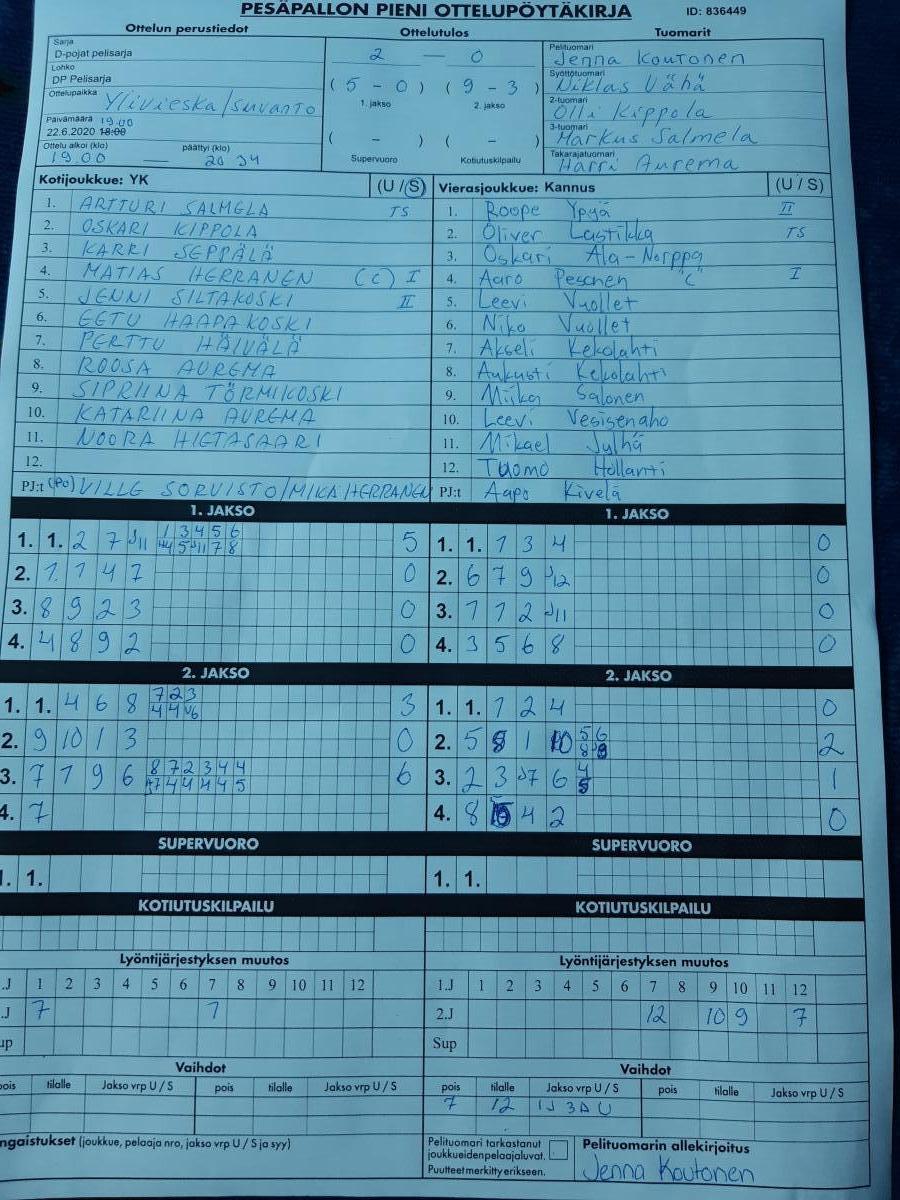 PESÄPALLON PIENI OTTELUPÖYTÄKIRJA ID: 836449
Ottelun perustiedot Ottelutulos Tuomarit
Sarja
D-pojat pelisarja
Lohko
DP Pelisarja
Ottelupaikka Ylivieska/suvanto
Päivämäärä 19.00
22.6.2020 18:00
Ottelu alkoi (klo) päättyi (klo)
19.00 — 20 34
2 — 0
( 5 - 0 ) ( 9 - 3 )
1. jakso 2. jakso
( - ) ( - )
Supervuoro Kotiutuskilpailu
Pelituomari
Jenna Koutonen
Syöttötuomari
Niklas Vähä
2-tuomari
Olli Kippola
3-tuomari
Markus Salmela
Takarajatuomari
Harri Aurema
Kotijoukkue: YK (U / S)
1. ARTTURI SALMELA TS
2. OSKARI KIPPOLA
3. KARRI SEPPÄLÄ
4. MATIAS HERRANEN (C) I
5. JENNI SILTAKOSKI II
6. EETU HAAPAKOSKI
7. PERTTU HÄIVÄLÄ
8. ROOSA AUREMA
9. SIPRIINA TÖRMIKOSKI
10. KATARIINA AUREMA
11. NOORA HIETASAARI
12.
PJ:t (PO) VILLE SORVISTO/MIKA HERRANEN
Vierasjoukkue: Kannus (U / S)
1. Roope Ypyä II
2. Oliver Lastikka TS
3. Oskari Ala-Norppa
4. Aaro Pesonen "C" I
5. Leevi Vuollet
6. Niko Vuollet
7. Akseli Kekolahti
8. Aukusti Kekolahti
9. Miika Salonen
10. Leevi Vesisenaho
11. Mikael Jylhä
12. Tuomo Hollanti
PJ:t Aapo Kivelä
1. JAKSO
1. 1. 2 7 J11 1 3 4 5 6 5
4 5 J11 7 8
2. 1 1 4 7 0
3. 8 9 2 3 0
4. 4 8 9 2 0
1. JAKSO
1. 1. 1 3 4 0
2. 6 7 9 J12 0
3. 7 1 2 J11 0
4. 3 5 6 8 0
2. JAKSO
1. 1. 4 6 8 7 2 3 3
4 4 J6
2. 9 10 1 3 0
3. 7 1 9 6 8 7 2 3 4 4 6
4 4 4 4 5
4. 7
2. JAKSO
1. 1. 1 2 4 0
2. 5 8 1 10 5 6 2
8
3. 2 3 J7 6 4 1
5
4. 8 4 2 0
SUPERVUORO
1. 1.
SUPERVUORO
1. 1.
KOTIUTUSKILPAILU
KOTIUTUSKILPAILU
Lyöntijärjestyksen muutos
.J 1 2 3 4 5 6 7 8 9 10 11 12
.J 7 1
up
Lyöntijärjestyksen muutos
1.J 1 2 3 4 5 6 7 8 9 10 11 12
2.J 12 10 9 7
Sup
Vaihdot
pois tilalle Jakso vrp U / S pois tilalle Jakso vrp U / S
Vaihdot
pois tilalle Jakso vrp U / S pois tilalle Jakso vrp U / S
7 12 1J 3A U
ngaistukset (joukkue, pelaaja nro, jakso vrp U / S ja syy)
Pelituomari tarkastanut
joukkueidenpelaajaluvat.
Puutteet merkitty erikseen.
Pelituomarin allekirjoitus
Jenna Koutonen